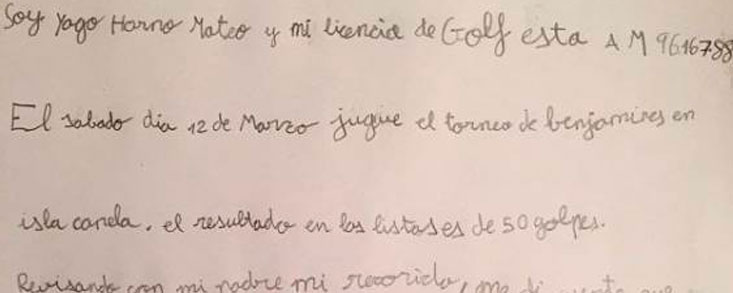 Soy Yago Horno Mateo y mi licencia de Golf esta AM 9616788
El sabado dia 12 de Marzo jugue el torneo de benjamines en
isla canela. el resultado en las listas es de 50 golpes.
Revisando con mi padre mi recorrido, me di cuenta que